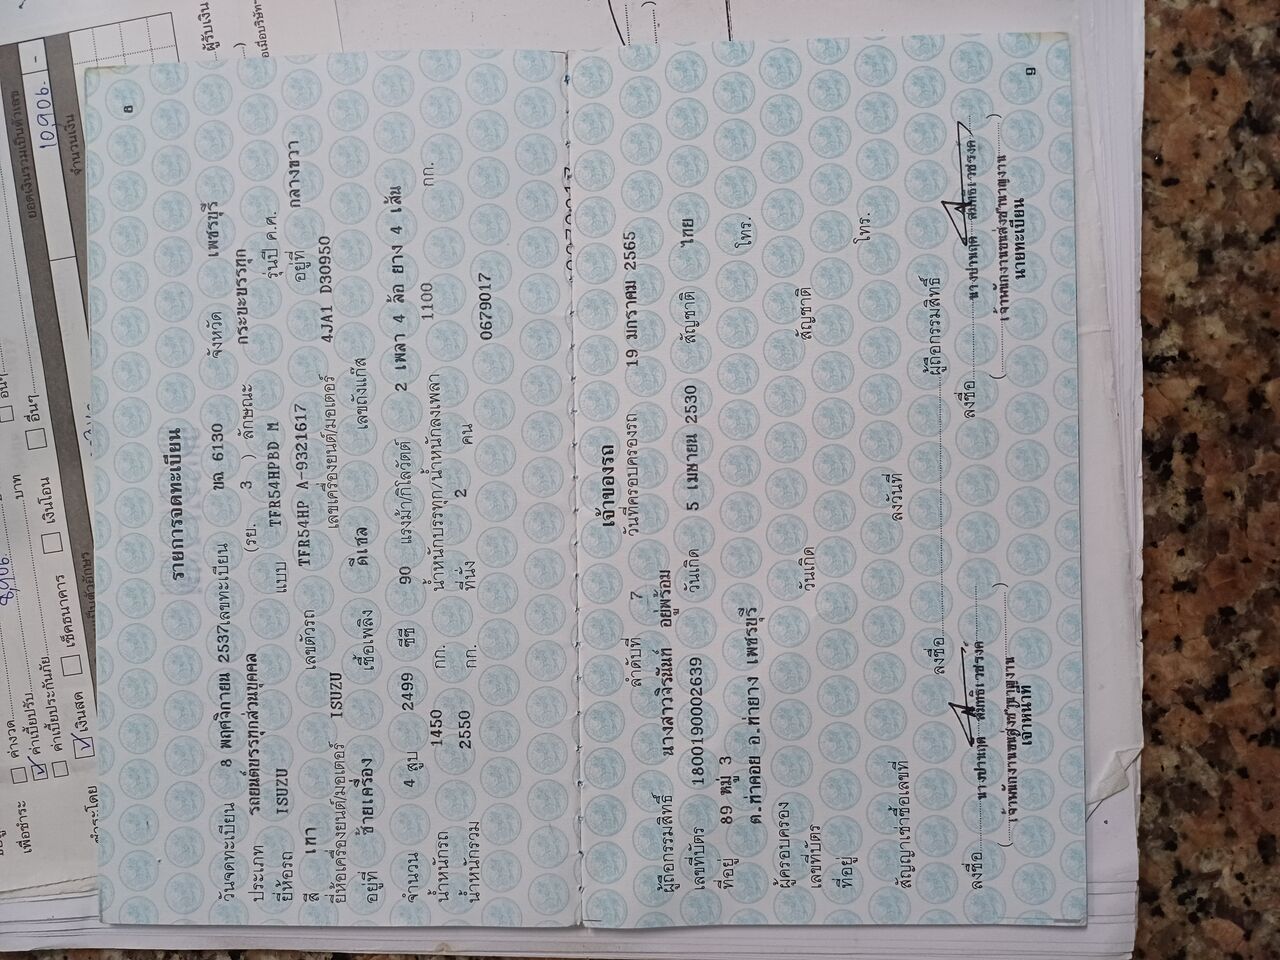 8
รายการจดทะเบียน
วันจดทะเบียน 8 พฤศจิกายน 2537 เลขทะเบียน ขฉ 6130 จังหวัด เพชรบุรี
ประเภท รถยนต์บรรทุกส่วนบุคคล (รย. 3 ) ลักษณะ กระบะบรรทุก
ยี่ห้อรถ ISUZU แบบ TFR54HPBD M รุ่นปี ค.ศ.
สี เทา เลขตัวรถ TFR54HP A-9321617 อยู่ที่ กลางขวา
ยี่ห้อเครื่องยนต์/มอเตอร์ ISUZU เลขเครื่องยนต์/มอเตอร์ 4JA1 D30950
อยู่ที่ ซ้ายเครื่อง เชื้อเพลิง ดีเซล เลขถังแก๊ส
จำนวน 4 สูบ 2499 ซีซี 90 แรงม้า/กิโลวัตต์ 2 เพลา 4 ล้อ ยาง 4 เส้น
น้ำหนักรถ 1450 กก. น้ำหนักบรรทุก/น้ำหนักลงเพลา 1100 กก.
น้ำหนักรวม 2550 กก. ที่นั่ง 2 คน
0679017
เจ้าของรถ
ลำดับที่ 7 วันที่ครอบครองรถ 19 มกราคม 2565
ผู้ถือกรรมสิทธิ์ นางสาวจิรนันท์ อยู่พร้อม
เลขที่บัตร 1800190002639 วันเกิด 5 เมษายน 2530 สัญชาติ ไทย
ที่อยู่ 89 หมู่ 3 โทร.
ต.ท่าคอย อ.ท่ายาง เพชรบุรี
ผู้ครอบครอง
เลขที่บัตร วันเกิด สัญชาติ
ที่อยู่ โทร.
สัญญาเช่าซื้อเลขที่ ลงวันที่
ลงชื่อ ผู้ถือกรรมสิทธิ์
ลงชื่อ ลงชื่อ
(เจ้าพนักงานขนส่งชำนาญงาน) (เจ้าพนักงานขนส่งชำนาญงาน)
เจ้าหน้าที่ นายทะเบียน
9
เพื่อชำระ ค่างวด
ค่าเบี้ยปรับ บาท อื่นๆ
ค่าเบี้ยประกันภัย
ชำระโดย เงินสด เช็คธนาคาร เงินโอน อื่นๆ
ยอดเงินรวมเป็นตัวเลข
10,906. -
จำนวนเงิน
ผู้รับเงิน